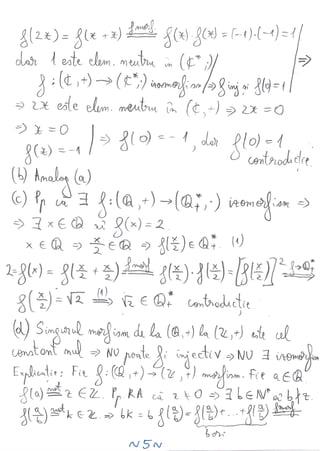 f(2x) = f(x+x) =(f morf) f(x)·f(x) = (-1)·(-1) = 1
dar 1 este elem. neutru în (ℂ*,·)
f:(ℂ,+)→(ℂ*,·) izomorfism ⇒ f inj și f(0)=1 | ⇒
⇒ 2x este elem. neutru în (ℂ,+) ⇒ 2x=0
⇒ x=0
f(x)=-1 | ⇒ f(0)=-1, dar f(0)=1
contradicție.
(b) Analog (a)
(c) Pp că ∃ f:(ℚ,+)→(ℚ*₊,·) izomorfism ⇒
⇒ ∃ x∈ℚ aî f(x)=2.
x∈ℚ ⇒ x/2∈ℚ ⇒ f(x/2)∈ℚ*₊ (1)
2=f(x)=f(x/2+x/2) =(f morf) f(x/2)·f(x/2)=[f(x/2)]² ⇒
f(x/2)=√2 ⇒(1) √2∈ℚ*₊ contradicție.
(d) Singurul morfism de la (ℚ,+) la (ℤ,+) este cel
constant nul ⇒ NU poate fi injectiv ⇒ NU ∃ izomorfism
Explicație: Fie f:(ℚ,+)→(ℤ,+) morfism. Fie a∈ℚ
f(a) =(not) z∈ℤ. Pp RA că z≠0 ⇒ ∃ b∈ℕ* aî b∤z.
f(a/b) =(not) k∈ℤ. ⇒ bk = b f(a/b) = f(a/b)+...+f(a/b) =(f morf)
b ori
~5~